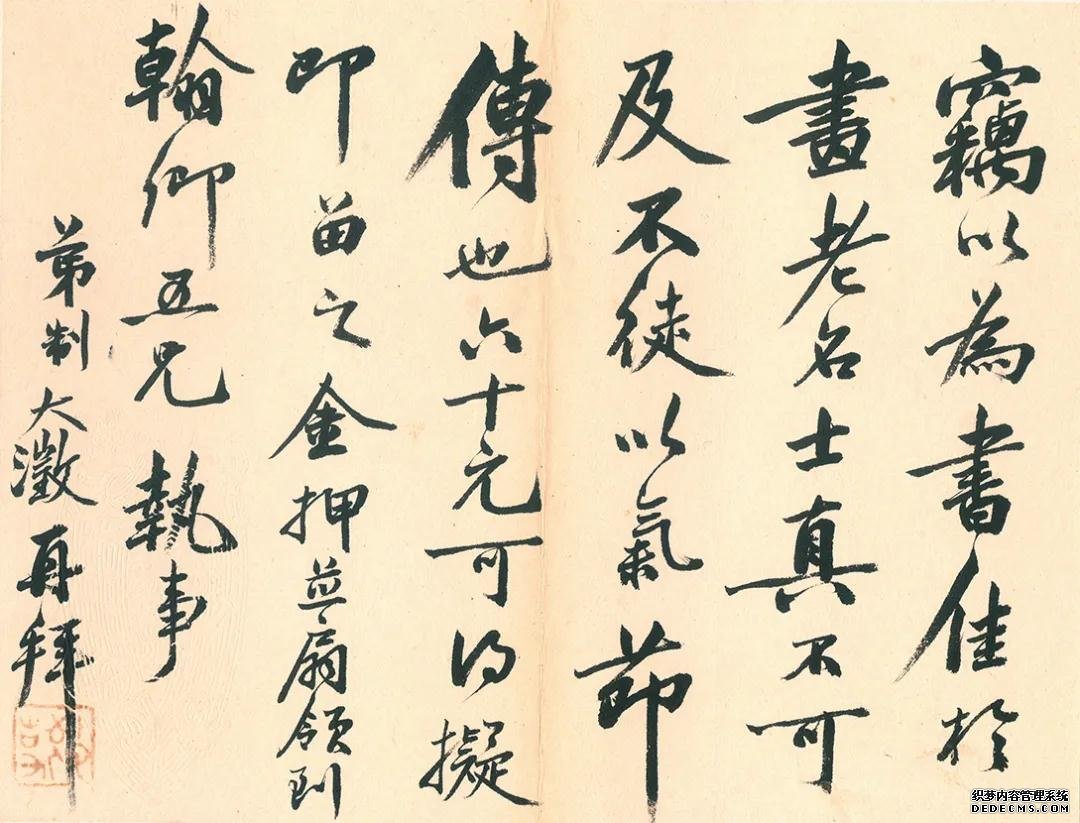 竊以為書佳於
畫老名士真不可
及不徒以氣節
傳也六十元可得擬
即留之金押並扇領到
翰卿五兄執事
弟制大澂再拜
织梦内容管理系统
DEDECMS.COM